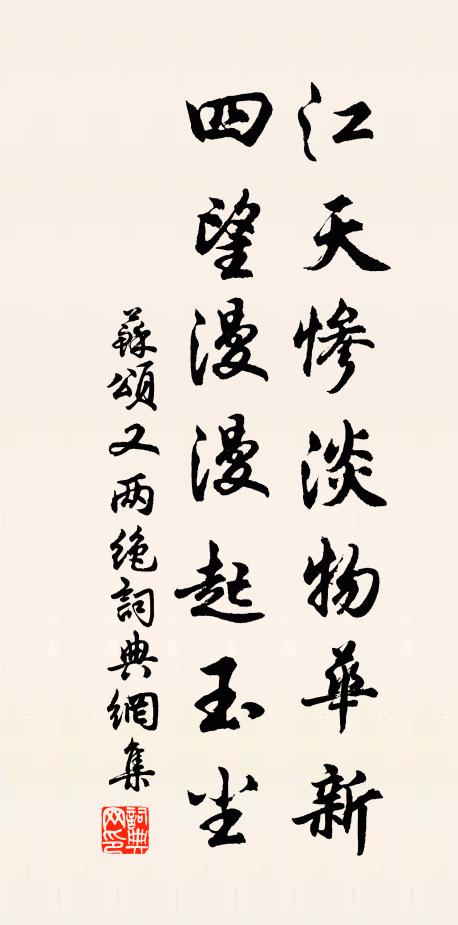 江天惨淡物華新
四望漫漫起玉尘
蘇頌又两绝詞典網集
詞典网印